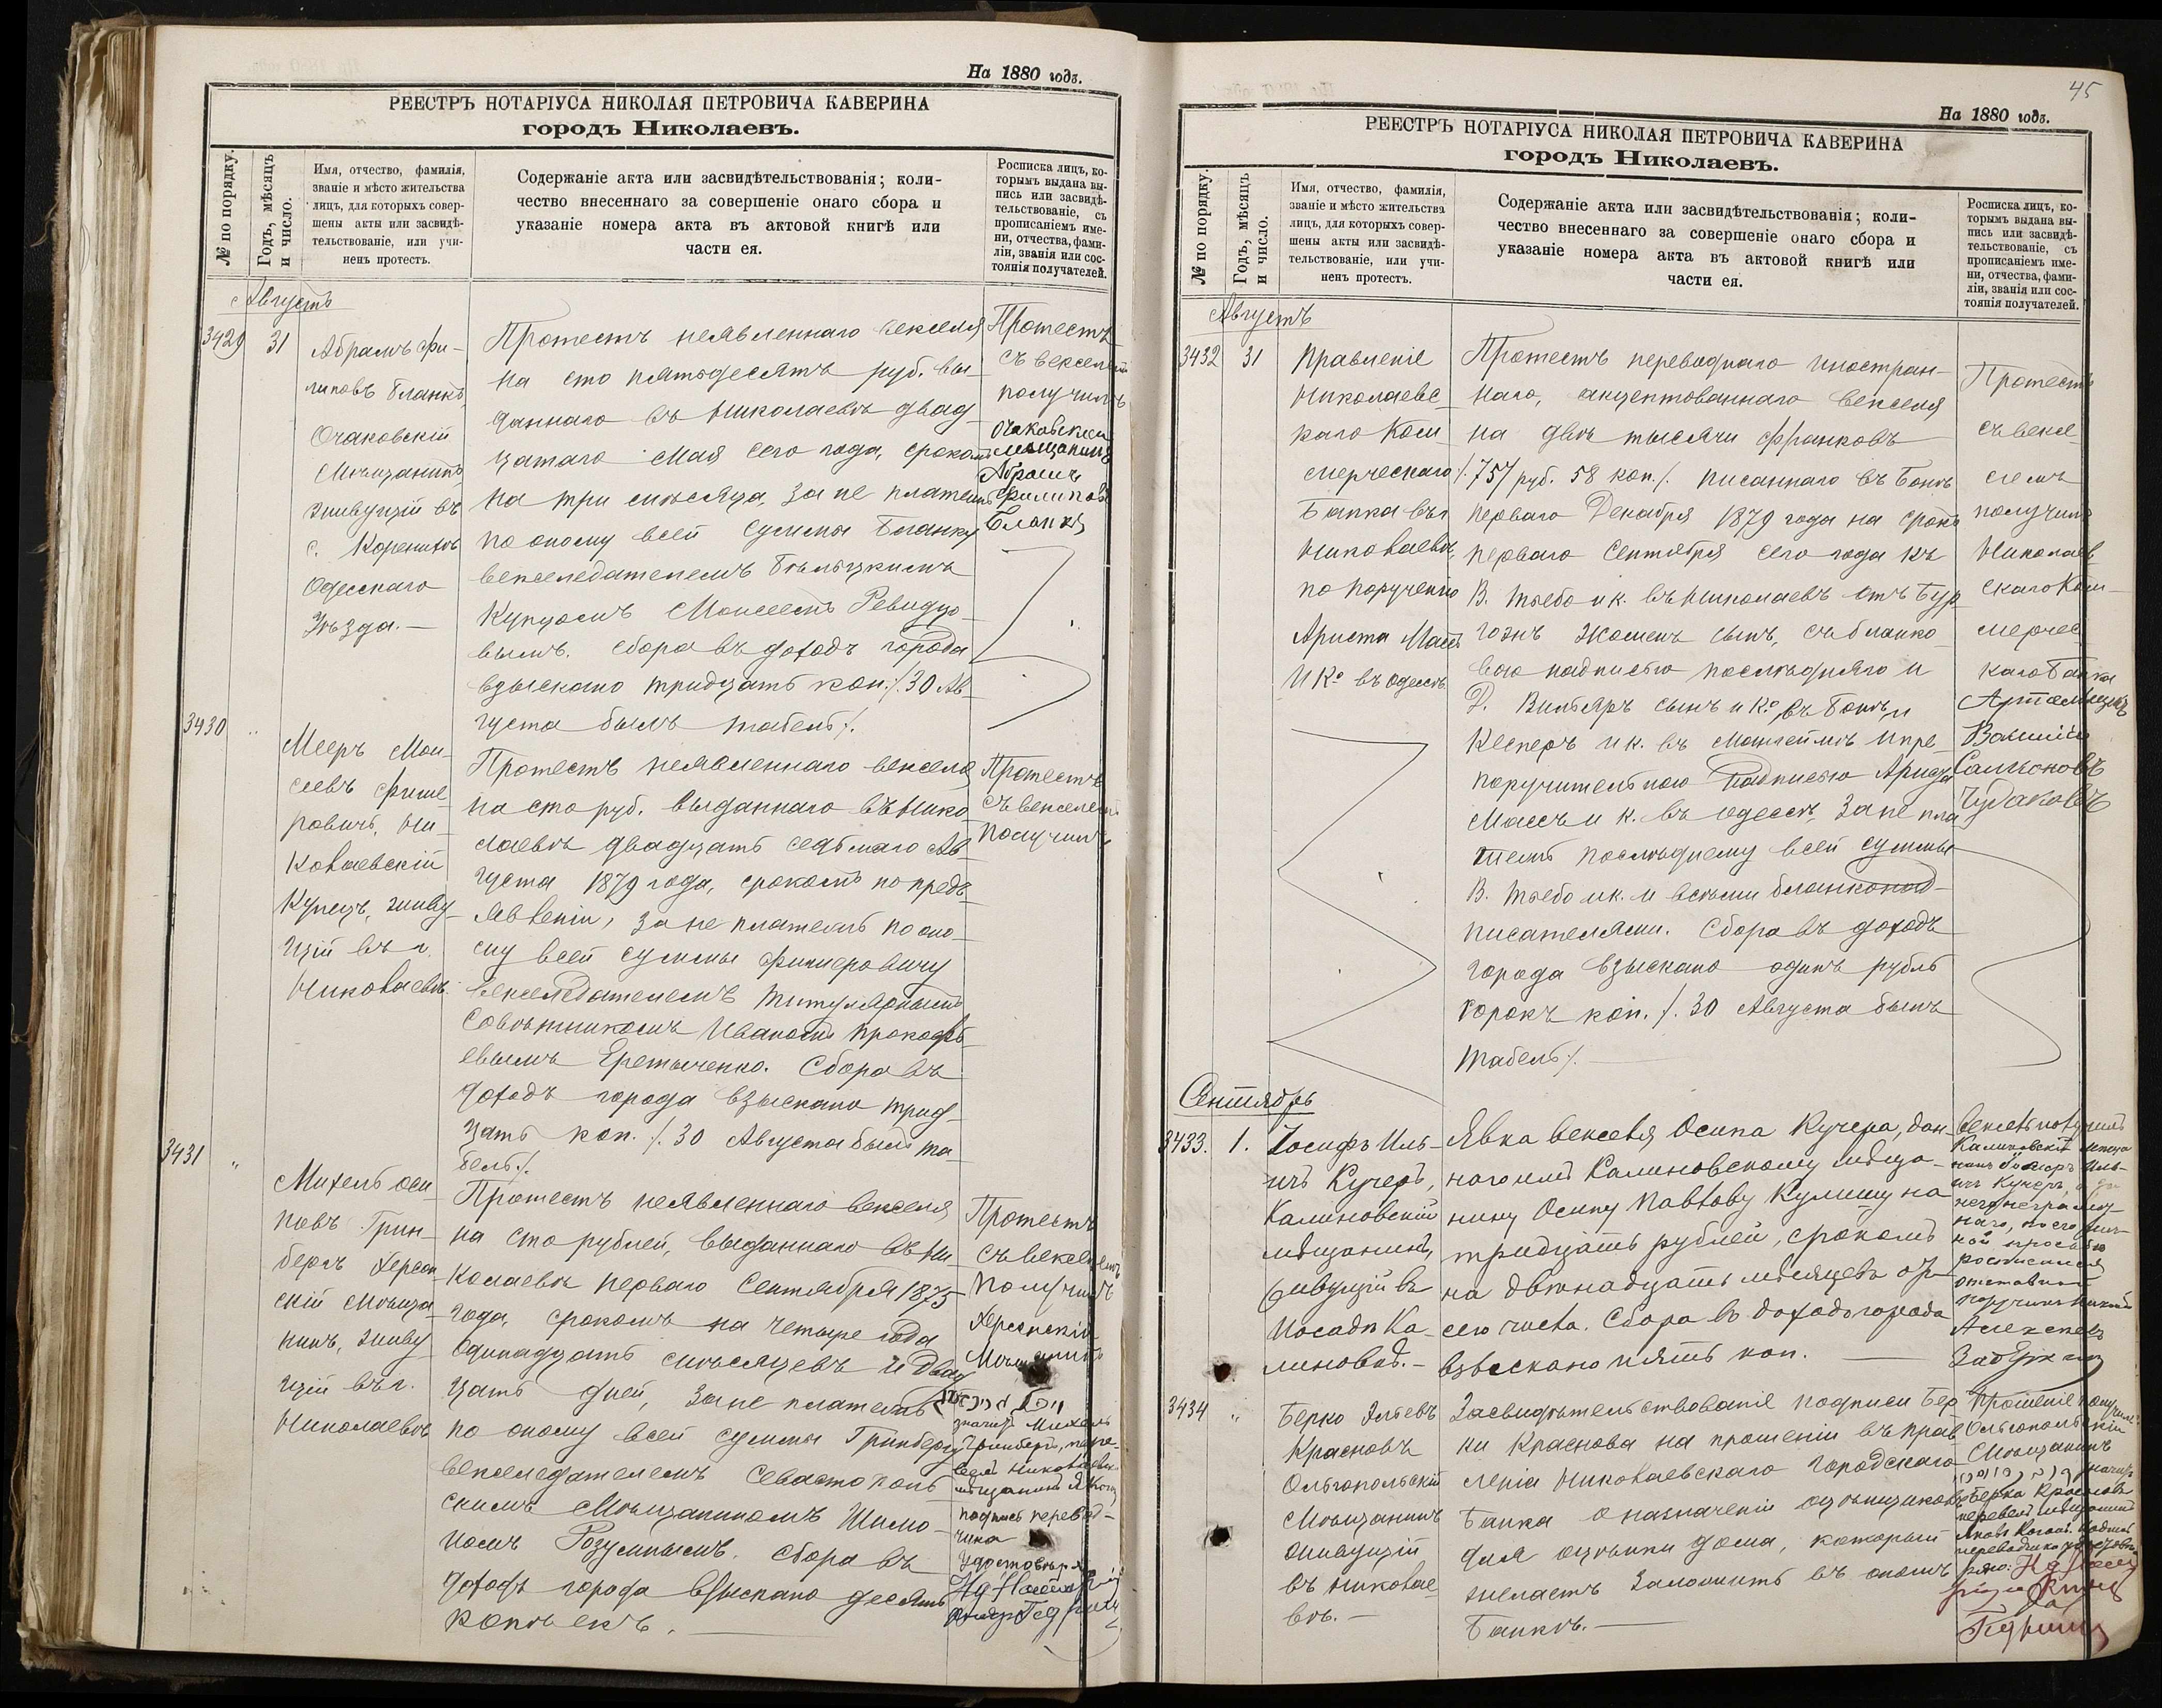 На 1880 годъ.
РЕЕСТРЪ НОТАРІУСА НИКОЛАЯ ПЕТРОВИЧА КАВЕРИНА
городъ Николаевъ.
№ по порядку.
Годъ, мѣсяцъ
и число.
Имя, отчество, фамилія,
званіе и мѣсто жительства
лицъ, для которыхъ совер-
шены акты или засвидѣ-
тельствованіе, или учи-
ненъ протестъ.
Содержаніе акта или засвидѣтельствованія; коли-
чество внесеннаго за совершеніе онаго сбора и
указаніе номера акта въ актовой книгѣ или
части ея.
Росписка лицъ, ко-
торымъ выдана вы-
пись или засвидѣ-
тельствованіе, съ
прописаніемъ име-
ни, отчества, фами-
ліи, званія или сос-
тоянія получателей.
Августъ
3429
31
Абрамъ Фи-
липовъ Бланкъ,
Очаковскій
Мѣщанинъ,
живущій въ
с. Коренихѣ
Одесскаго
Уѣзда.—
Протестъ неявленнаго векселя
на сто пятьдесятъ руб. вы-
даннаго въ Николаевѣ двад-
цатаго Мая сего года, срокомъ
на три мѣсяца, за не платежъ
по оному всей суммы Бланку
векселедателемъ Бѣльцкимъ
Купцомъ Моисеемъ Ревидцо-
вымъ. Сбора въ доходъ города
взыскано тридцать коп. /. 30 Ав-
густа былъ табель /.
Протестъ
съ векселемъ
получилъ
Очаковскій
мѣщанинъ
Абрамъ
Филиповъ
Бланкъ
3430
"
Мееръ Мои-
сеевъ Фише-
ровичъ, Ни-
колаевскій
Купецъ, живу-
щій въ г.
Николаевѣ.
Протестъ неявленнаго векселя
на сто руб. выданнаго въ Нико-
лаевѣ двадцать седьмаго Ав-
густа 1879 года, срокомъ по предъ-
явленіи, за не платежъ по оно-
му всей суммы Фишеровичу
векселедателемъ Титулярнымъ
Совѣтникомъ Иваномъ Прокофь-
евымъ Яремыченко. Сбора въ
доходъ города взыскано трид-
цать коп. /. 30 Августа былъ та-
бель /.
Протестъ
съ векселемъ
получилъ
3431
"
Михель Оси-
повъ Грин-
бергъ Херсон-
скій Мѣща-
нинъ, живу-
щій въ г.
Николаевѣ
Протестъ неявленнаго векселя
на сто рублей, выданнаго въ Ни-
колаевѣ перваго Сентября 1875
года, срокомъ на четыре года
одинадцать мѣсяцевъ и двад-
цать дней, за не платежъ
по оному всей суммы Гринбергу
векселедателемъ Севастополь-
скимъ Мѣщаниномъ Шимо-
номъ Розумнымъ. Сбора въ
доходъ города взыскано десять
копѣекъ.
Протестъ
съ векселемъ
получилъ
Херсонскій
Мѣщанинъ
значитъ Михель
Гринбергъ, пере-
велъ Николаевск.
мѣщанинъ Я Коганъ
подпись перевод-
чика
удостовѣряю
45
На 1880 годъ.
РЕЕСТРЪ НОТАРІУСА НИКОЛАЯ ПЕТРОВИЧА КАВЕРИНА
городъ Николаевъ.
№ по порядку.
Годъ, мѣсяцъ
и число.
Имя, отчество, фамилія,
званіе и мѣсто жительства
лицъ, для которыхъ совер-
шены акты или засвидѣ-
тельствованіе, или учи-
ненъ протестъ.
Содержаніе акта или засвидѣтельствованія; коли-
чество внесеннаго за совершеніе онаго сбора и
указаніе номера акта въ актовой книгѣ или
части ея.
Росписка лицъ, ко-
торымъ выдана вы-
пись или засвидѣ-
тельствованіе, съ
прописаніемъ име-
ни, отчества, фами-
ліи, званія или сос-
тоянія получателей.
Августъ
3432
31
Правленіе
Николаевс-
каго Ком-
мерческаго
Банка въ г.
Николаевѣ,
по порученію
Ариста Массъ
и Ко въ Одессѣ.
Протестъ переводнаго иностран-
наго, акцептованнаго векселя
на двѣ тысячи франковъ
/. 757 руб. 58 коп. /. писаннаго въ Бонѣ
перваго Декабря 1879 года на срокъ
перваго Сентября сего года къ
В. Тьебо и к. въ Николаевѣ отъ Бур-
гоэнъ Жоменъ сынъ, съ бланко-
вою надписью послѣдняго и
Д. Вильяръ сынъ и Ко въ Бонѣ, и
Кесперъ и к. въ Мангеймѣ и пре-
поручительною надписью Ариста
Массъ и к. въ Одессѣ, за не пла-
тежъ послѣднему всей суммы
В. Тьебо и к. и всѣми бланконад-
писателями. Сбора въ доходъ
города взыскано одинъ рубль
сорокъ коп. /. 30 Августа былъ
табель /.
Протестъ
съ вексе-
лемъ
получилъ
Николаев-
скаго Ком-
мерчес-
каго Банка
Артельщикъ
Василій
Самсоновъ
Чудаковъ
Сентябрь
3433.
1.
Іосифъ Иль-
инъ Кучеръ,
Калиновскій
мѣщанинъ,
живущій въ
посадѣ Ка-
линовкѣ.—
Явка векселя Осипа Кучера, дан-
наго имъ Калиновскому мѣща-
нину Осипу Павлову Кулишу на
тридцать рублей, срокомъ
на двѣнадцать мѣсяцевъ отъ
сего числа. Сбора въ доходъ города
взыскано пять коп.
вексель получилъ
Калиновскій мѣща-
нинъ Іосифъ Иль-
инъ Кучеръ, а за
него неграмот-
наго, по его лич-
ной просьбѣ
росписался
отставной
поручикъ
Алексѣевъ
3434
"
Берко Эльевъ
Красновъ
Ольгопольскій
Мѣщанинъ
живущій
въ Николае-
вѣ.—
Засвидѣтельствованіе подписи Бер-
ки Краснова на прошеніи въ прав-
леніе Николаевскаго Городскаго
Банка о назначеніи оцѣнщиковъ
для оцѣнки дома, который
желаетъ заложить въ ономъ
Банкѣ.—
Прошеніе получилъ
Ольгопольскій
Мѣщанинъ
значитъ
Берка Красновъ
перевелъ мѣщанинъ
Яковъ Коганъ. Подпись
переводчика удостовѣ-
ряю: